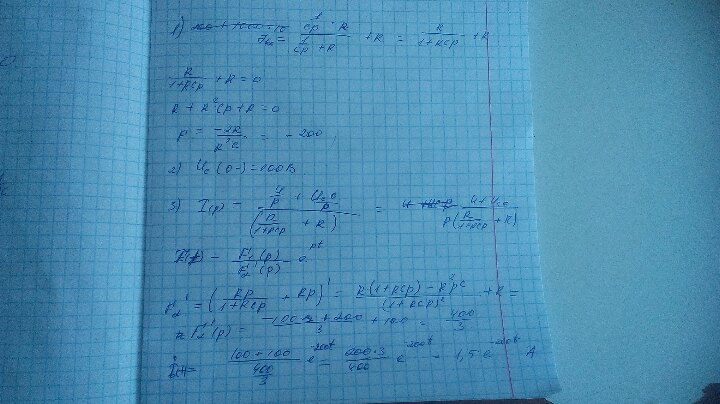 1) Zвх = (1/cp · R)/(1/cp + R) + R = R/(1+Rcp) + R
R/(1+Rcp) + R = 0
R + R²cp + R = 0
p = -2R/R²c = -200
2) Uc (0-) = 100 В
3) I(p) = (U/p + Uco/p)/(R/(1+Rcp) + R) = (U+Uco)/(p(R/(1+Rcp) + R))
F1(p)/F2'(p) e^pt
F2' = (Rp/(1+Rcp) + Rp)' = (R(1+Rcp) - R²pc)/(1+Rcp)² + R =
F2'(p) = + 100 = 400/3
(100+100)/(400/3) e^-200t = 200·3/400 e^-200t = 1,5 e^-200t A